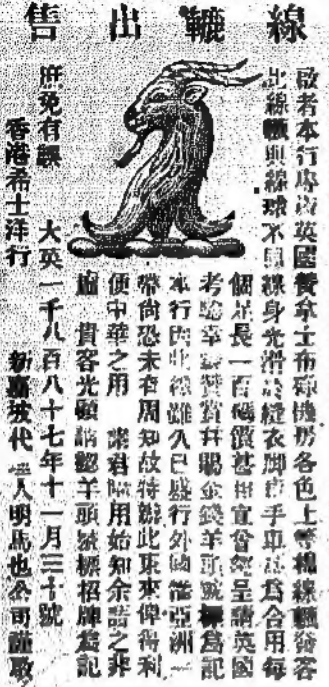 線轆出售
啟者本行專沽英國聲拿士布廊機房各色上等棉線轆發客
此線轆與線球不同線身光滑於縫衣脚車手車正為合用每
個足長一百碼價甚相宜曾經呈請英國
考驗幸蒙贊賞并賜金錢羊頭號標為記
本行因此線雖久已盛行外國惟亞洲一
帶尚恐未有周知故特辦此東來俾得利
便中華之用 諸君賜用始知余言之非
謬 貴客光顧請認羊頭號標招牌為記
庶免有誤 大英一千八百八十七年十一月三十號
香港希士洋行 新嘉坡代理人明馬也公司謹啟